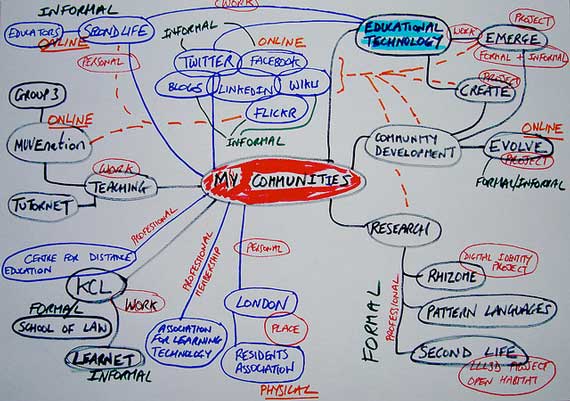 INFORMAL
EDUCATORS
SECOND LIFE
ONLINE
PERSONAL
WORK
EDUCATIONAL
TECHNOLOGY
WORK
PROJECT
EMERGE
FORMAL + INFORMAL
PROJECT
CREATE
INFORMAL
ONLINE
TWITTER
FACEBOOK
BLOGS
LINKEDIN
WIKI
FLICKR
INFORMAL
GROUP 3
ONLINE
MUVEnation
WORK
TEACHING
TUTORNET
MY COMMUNITIES
COMMUNITY
DEVELOPMENT
ONLINE
EVOLVE
PROJECT
FORMAL/INFORMAL
RESEARCH
DIGITAL IDENTITY
PROJECT
RHIZOME
PATTERN LANGUAGES
SECOND LIFE
PROJECT
OPEN HABITAT
FORMAL
PROFESSIONAL
PROFESSIONAL
CENTRE FOR DISTANCE
EDUCATION
KCL
WORK
FORMAL
SCHOOL OF LAW
LEARNET
INFORMAL
PROFESSIONAL
MEMBERSHIP
ASSOCIATION
FOR LEARNING
TECHNOLOGY
PERSONAL
LONDON
PLACE
RESIDENTS
ASSOCIATION
PHYSICAL